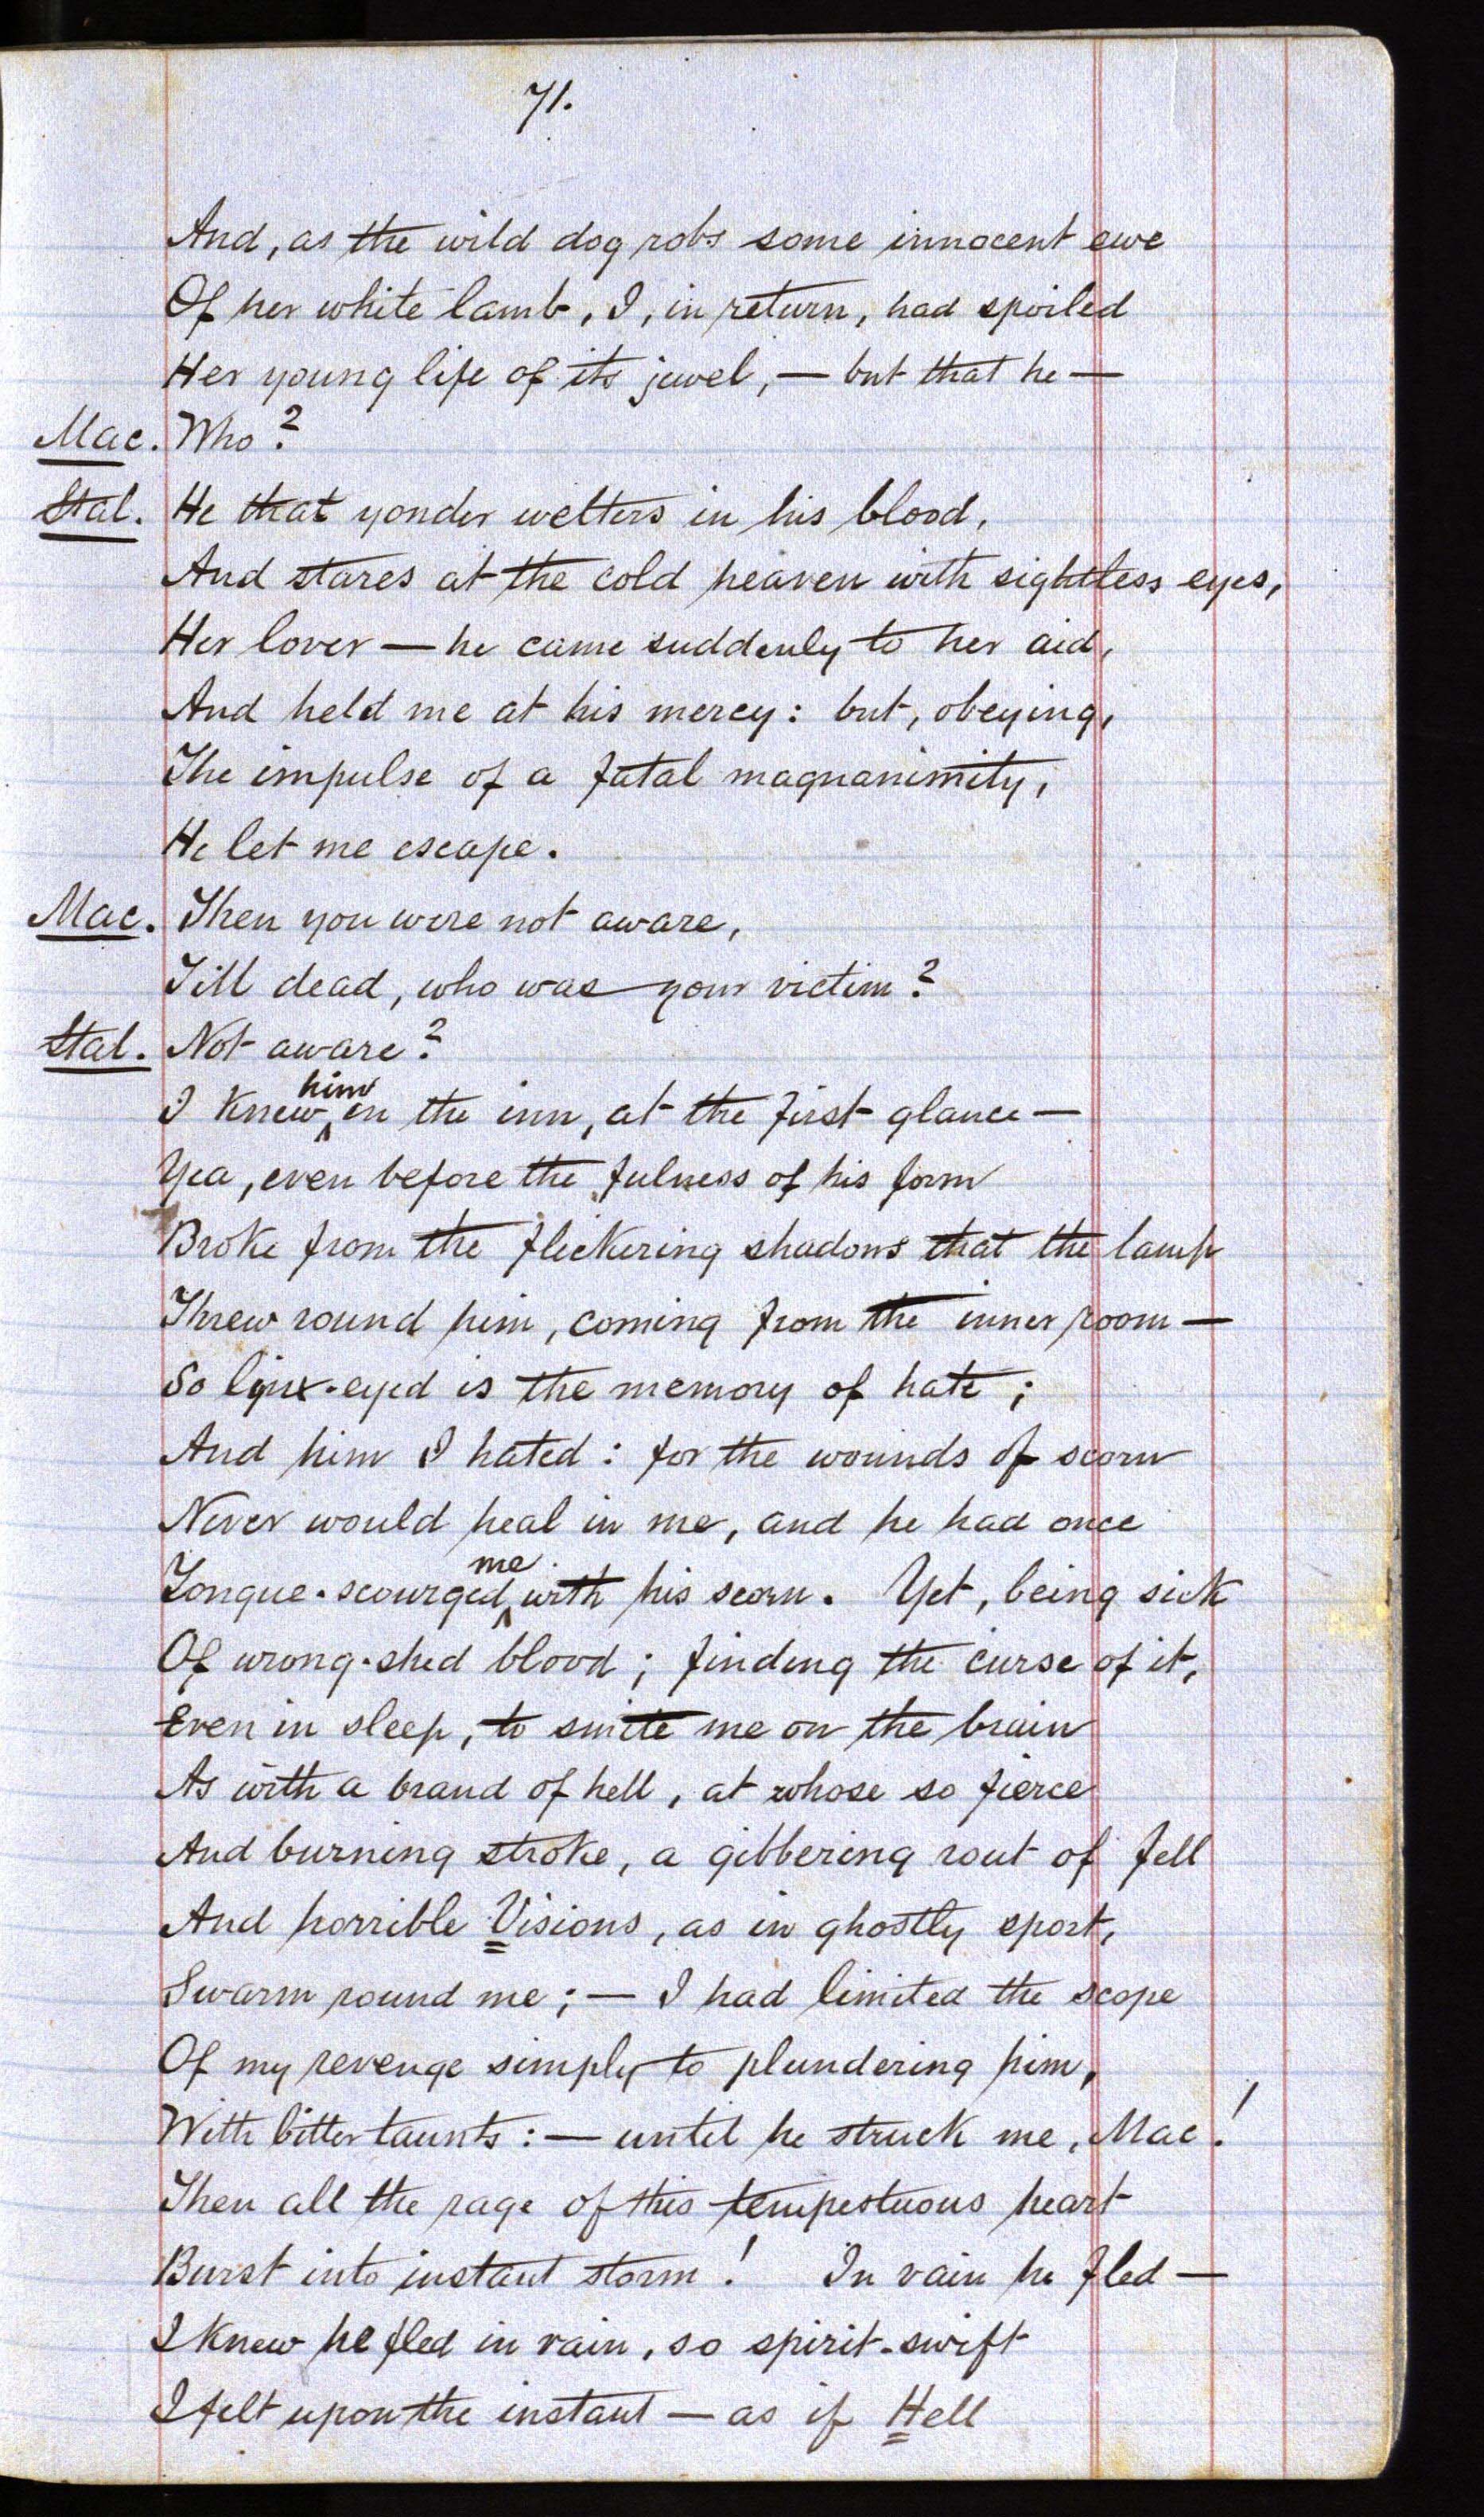 71.
And, as the wild dog robs some innocent ewe
Of her white lamb, I, in return, had spoiled
Her young life of its jewel, — but that he —
Mac. Who?
Stal. He that yonder welters in his blood,
And stares at the cold heaven with sightless eyes,
Her lover — he came suddenly to her aid,
And held me at his mercy: but, obeying,
The impulse of a fatal magnanimity,
He let me escape.
Mac. Then you were not aware,
Till dead, who was your victim?
Stal. Not aware?
I knew him in the inn, at the first glance —
Yea, even before the fulness of his form
Broke from the flickering shadows that the lamp
Threw round him, coming from the inner room —
So lynx-eyed is the memory of hate;
And him I hated: for the wounds of scorn
Never would heal in me, and he had once
Tongue-scourged me with his scorn. Yet, being sick
Of wrong-shed blood; finding the curse of it,
Even in sleep, to smite me on the brain
As with a brand of hell, at whose so fierce
And burning stroke, a gibbering rout of fell
And horrible Visions, as in ghostly sport,
Swarm round me; — I had limited the scope
Of my revenge simply to plundering him,
With bitter taunts: — until he struck me, Mac!
Then all the rage of this tempestuous heart
Burst into instant storm! In vain he fled —
I knew he fled in vain, so spirit-swift
I felt upon the instant — as if Hell